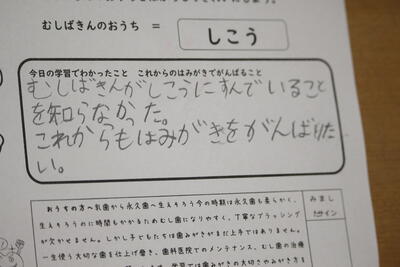 むしばきんのおうち = しこう
今日の学習でわかったこと これからのはみがきでがんばること
むしばきんがしこうにすんでいること
を知らなかった。
これからもはみがきをがんばりた
い。
おうちの方へ乳歯から永久歯へ生えそろう今の時期は永久歯も柔らかく、
生えそろうのに時間もかかるためむし歯になりやすく、丁寧なブラッシング
が欠かせません。しかし子どもたちは歯みがきがまだ上手ではありません。
一生使う大切な歯を仕上げ磨き、歯科医院でのメンテナンス、むし歯の治療
学習では歯みがきの大切さやみがき方
みまし
たサイン